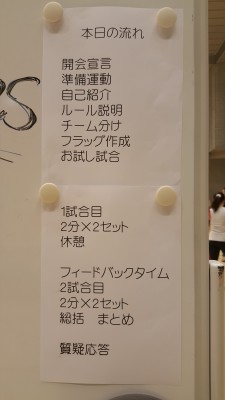 本日の流れ
開会宣言
準備運動
自己紹介
ルール説明
チーム分け
フラッグ作成
お試し試合
1試合目
2分×2セット
休憩
フィードバックタイム
2試合目
2分×2セット
総括 まとめ
質疑応答